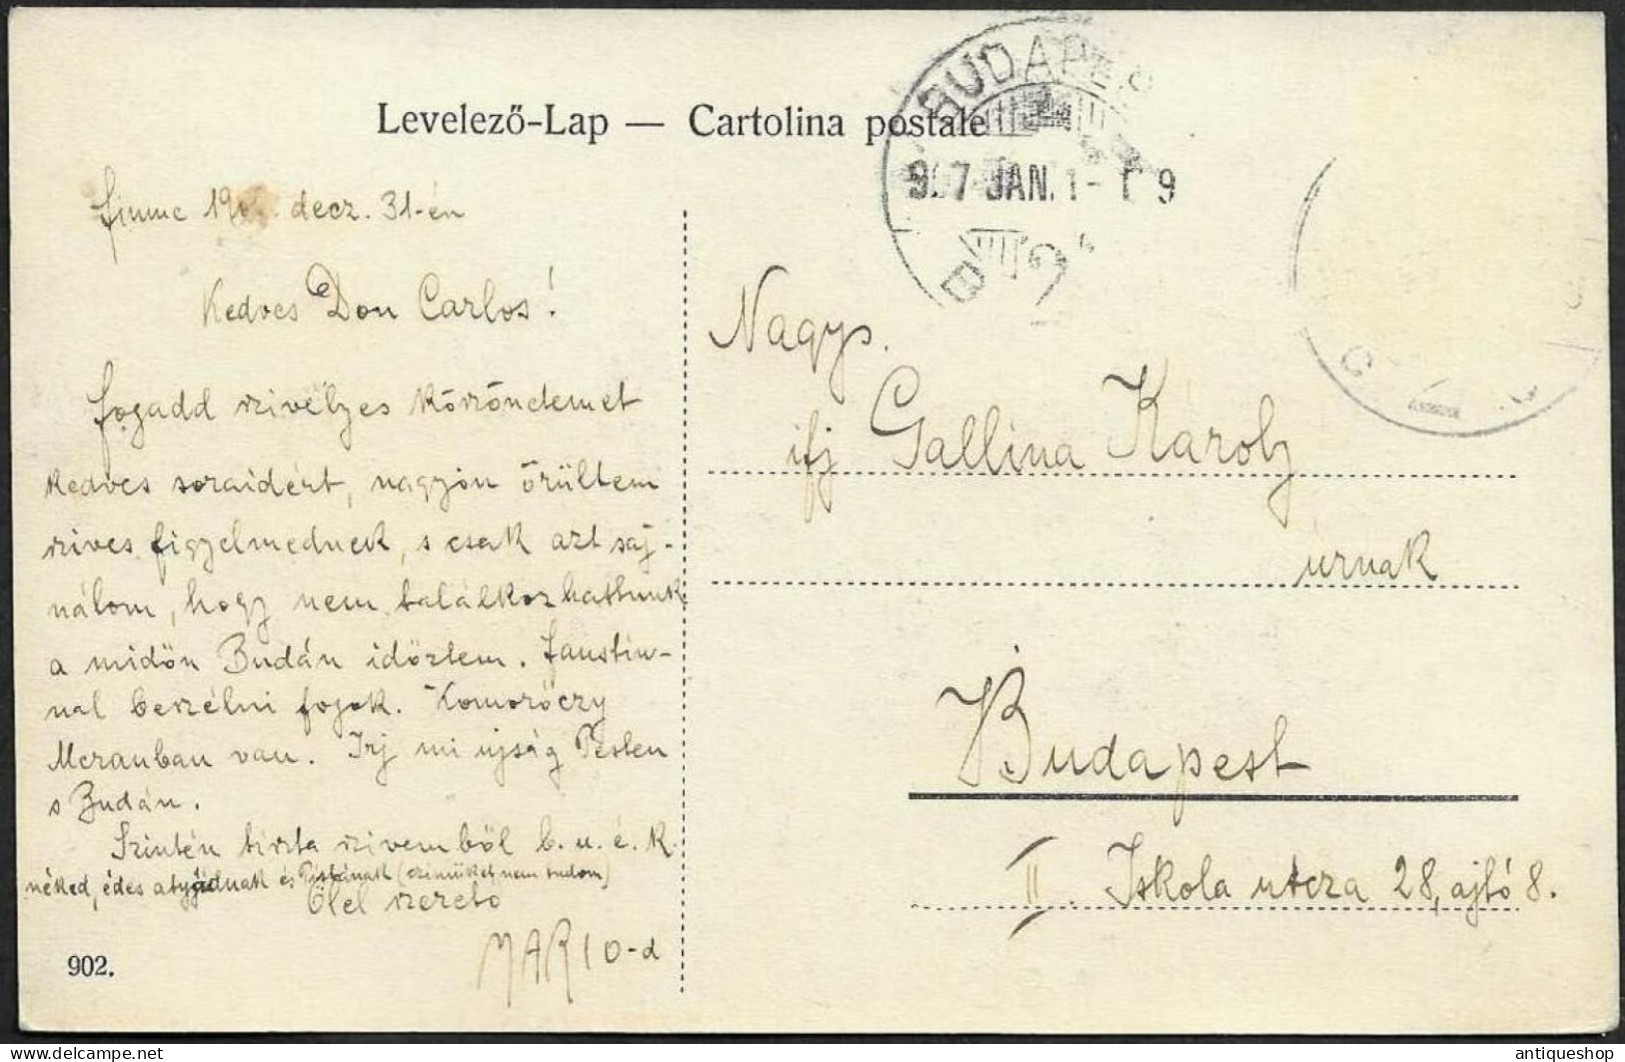 Levelező-Lap — Cartolina postale
BUDAPEST
907 JAN. 1-
9
B
Fiume decz. 31-én
Kedves Don Carlos!
fogadd szivélyes köszönetemet
kedves soraidért, nagyon örültem
szives figyelmednek, s csak azt saj-
nálom, hogy nem találkozhattunk
a midőn Budán időztem. Faustin-
nal beszélni fogok. Komoróczy
Meranban van. Irj mi ujság Pesten
s Budán.
Szintén tiszta szivemből b. u. é. k.
néked, édes atyádnak és Pistának (czimüket nem tudom)
Ölel szerető
MARIO-d
902.
Nagys.
ifj Gallina Károly
urnak
Budapest
II. Iskola utcza 28, ajtó 8.
antiqueshop